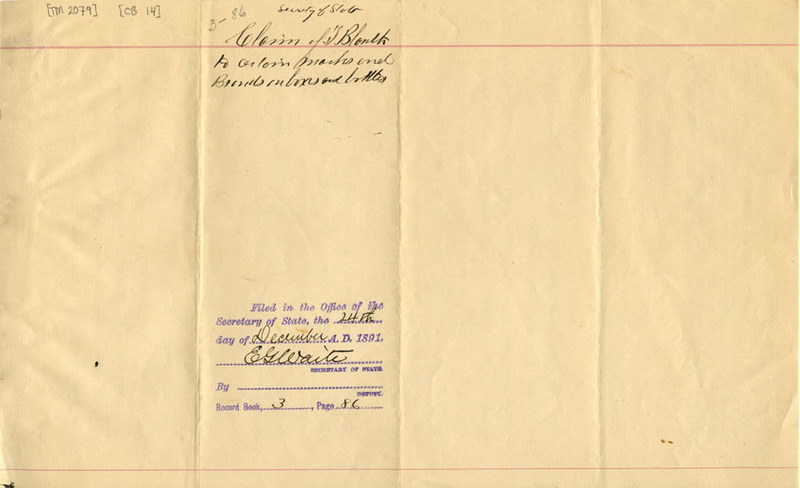 [TM 2079] [CB 14]
3-86
Secrety of State
Claim of T. Blauth
to certain marks and
Brands on boxes and bottles
Filed in the Office of the
Secretary of State, the 24th
day of December A. D. 1891.
E G Waite
SECRETARY OF STATE.
By
DEPUTY.
Record Book, 3, Page 86